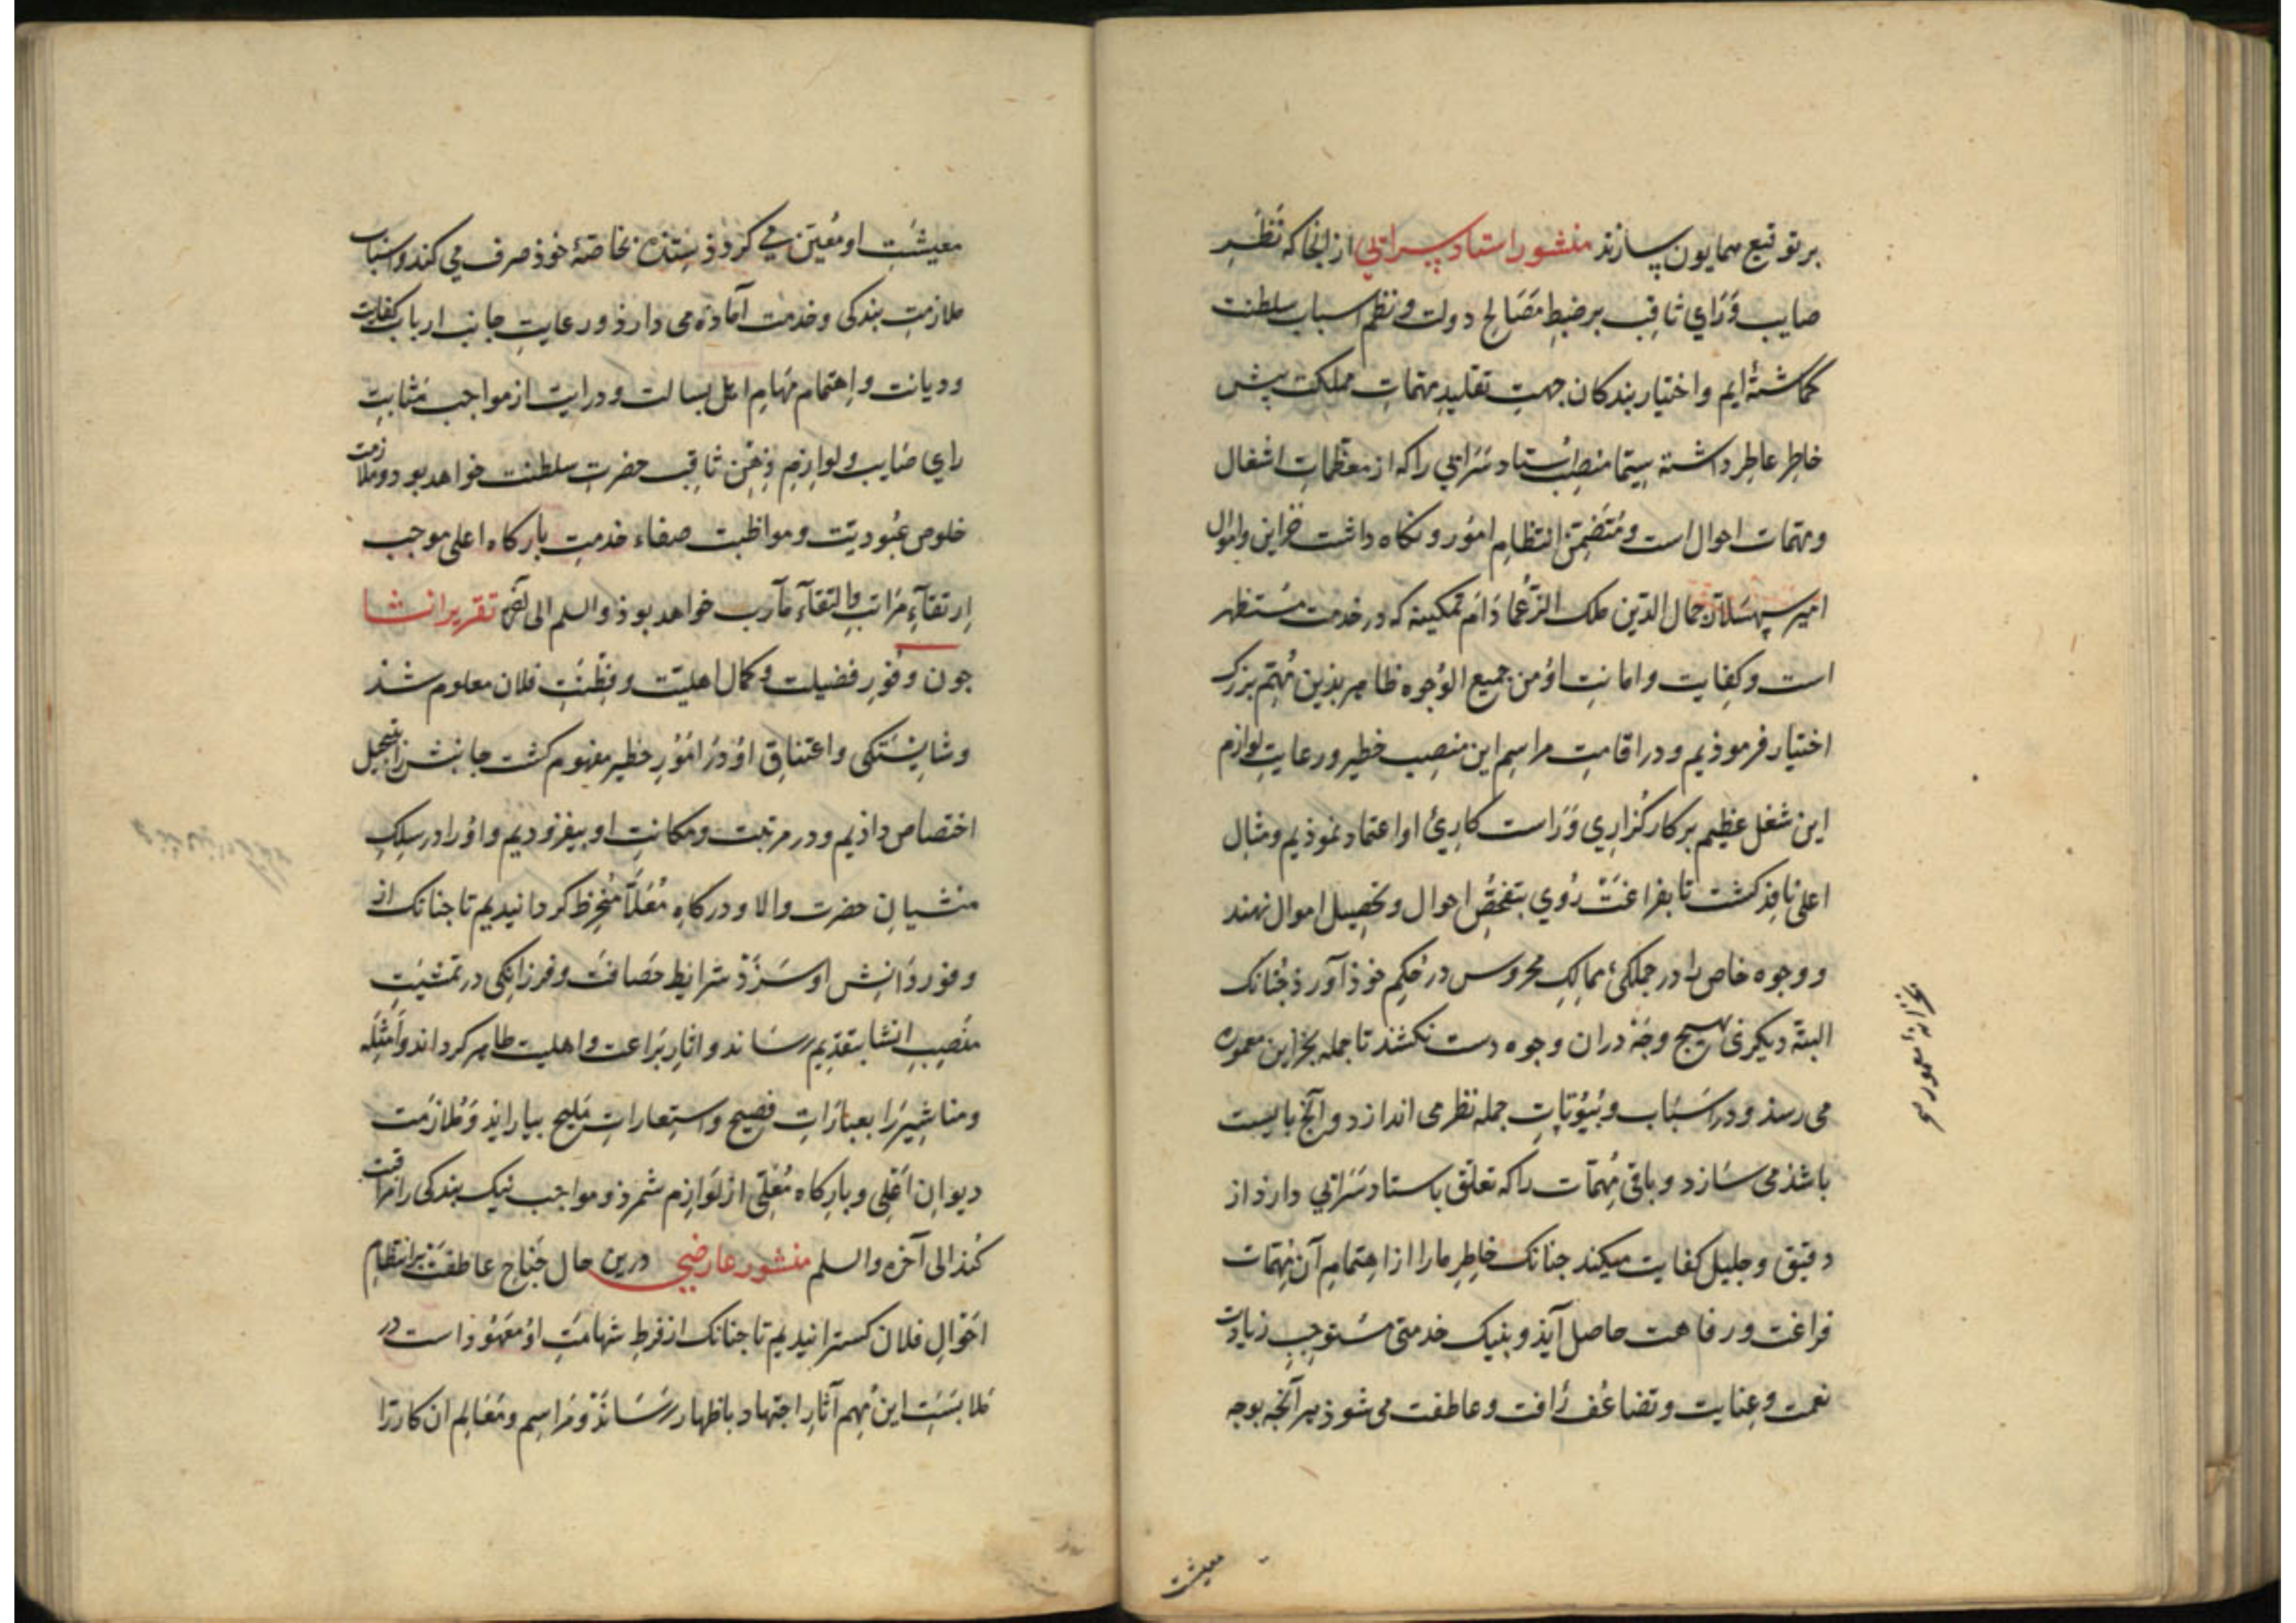 بر توقیع همایون سازند منشور استاد سرایی از آنجا که نظر
صایب و رای ثاقب بر ضبط مصالح دولت و نظم اسباب سلطنت
گماشته‌ایم و اختیار بندکان جهت تقلید مهمات مملکت پیش
خاطر عاطر داشته سیما منصب استاد سرایی را که از معظمات اشغال
و مهمات احوال است و متضمن انتظام امور و نکاه داشت خزاین و اموال
امیر سپهسلار جمال الدین ملک الزعما دام تمکینه که در خدمت مستظهر
است و کفایت و امانت او من جمیع الوجوه ظاهر بذین مهم بزرک
اختیار فرموذیم و در اقامت مراسم این منصب خطیر و رعایت لوازم
این شغل عظیم بر کارگزاری و راست کاریء او اعتماد نموذیم و مثال
اعلی نافذ کشت تا بفراغت روی بتفحص احوال و تحصیل اموال نهند
و وجوه خاص را در جملکیء ممالک محروس در حکم خوذ آورذ جنانک
البته دیکری بهیج وجه در ان وجوه دست نکشذ تا جمله بخزاین معموره
می رسذ و در اسباب و بیوتات جمله نظر می اندازد و آنج بایست
باشذ می سازد و باقی مهمات را که تعلق باستاد سرایی دارذ از
دقیق و جلیل کفایت میکند جنانک خاطر ما را از اهتمام آن مهمات
فراغت و رفاهت حاصل آیذ و بنیک خدمتی مستوجب زیادت
نعمت و عنایت و تضاعف رافت و عاطفت می شوذ هر آنجه بوجه
بخزانهٔ معموره
معیشت
معیشت او معین می کردذ ستذه بخاصهٔ خوذ صرف می کند و اسباب
ملازمت بندکی و خدمت آماده می دارذ و رعایت جانب ارباب کفایت
و دیانت و اهتمام مهام اهل بسالت و درایت از مواجب مثابت
رای صایب و لوازم ذهن ثاقب حضرت سلطنت خواهد بود و ملازمت
خلوص عبودیت و مواظبت صفاء خدمت بارکاه اعلی موجب
ارتقآء مراتب و التقآء مآرب خواهد بوذ والسلم الی تقریر انشا
جون وفور فضیلت و کمال اهلیت و فطنت فلان معلوم شذ
و شایستکی و اعتناق او در امور خطیر مفهوم کشت جانبش را بتبجیل
اختصاص داذیم و در مرتبت و مکانت او بیفزودیم و او را در سلک
منشیان حضرت والا و درکاه معلا منخرط کردانیدیم تا جنانک از
وفور دانش او سزذ شرایط حصافت و فرزانکی در تمشیت
منصب انشا بتقدیم رساند و اثار براعت و اهلیت ظاهر کرداند و امثله
و مناشیر را بعبارات فصیح و استعارات ملیح بیاراید و ملازمت
دیوان اعلی و بارکاه معلی از لوازم شمرذ و مواجب نیک بندکی را مراقبت
کنذ الی آخره والسلم منشور عارضی درین حال جناح عاطفت بر انتظام
احوال فلان کسترانیدیم تا جنانک از فرط شهامت او معهوذ است در
ملابست این مهم آثار اجتهاد باظهار رساند و مراسم و معالم ان کار را